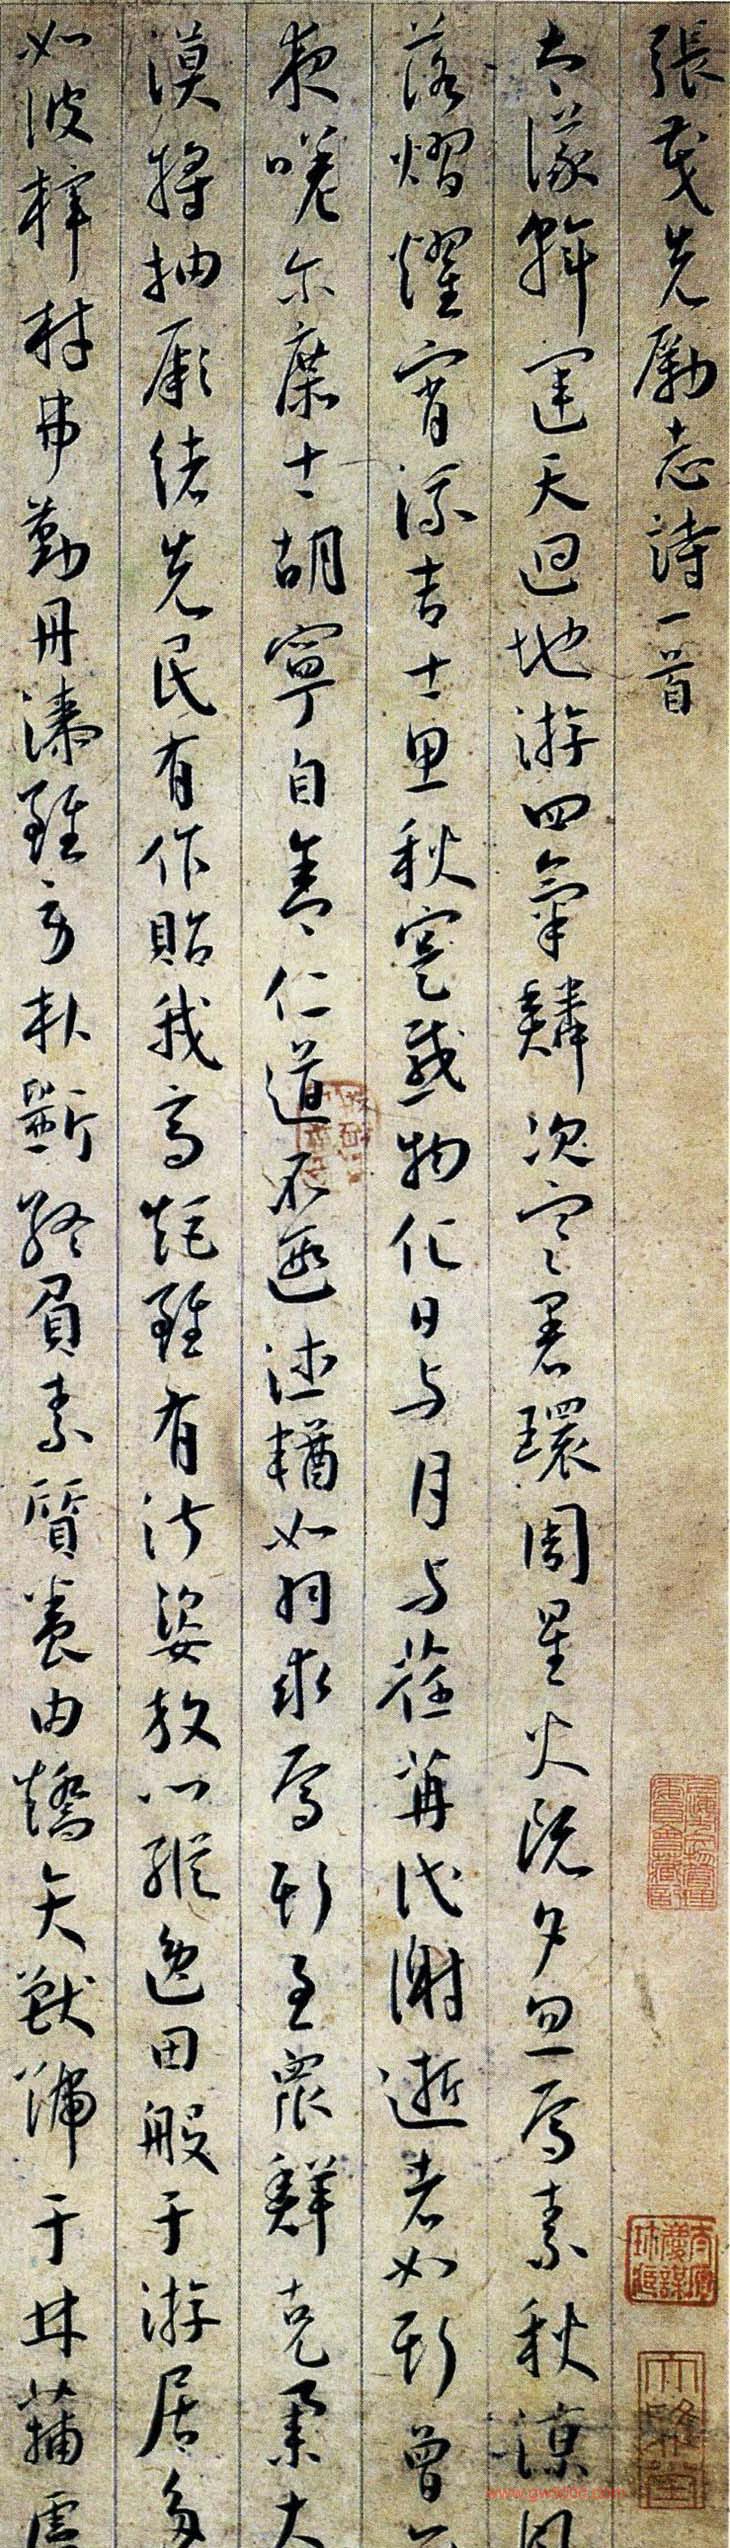 張茂先勵志詩一首
大儀斡運天迴地游四氣鱗次寒暑環周星火既夕忽焉素秋涼風
落熠燿宵流吉士思秋寔感物化日与月与荏苒代謝逝者如斯曾
夜嗟尔庶士胡寧自舍仁道不遐德輶如羽求焉斯至眾鮮克舉大
漠將抽厥緒先民有作貽我高矩雖有淑姿放心縱逸田般于游居多
如彼梓材弗勤丹漆雖勞朴斲終負素質養由矯矢獸號于林蒲盧
www.gw8888.com